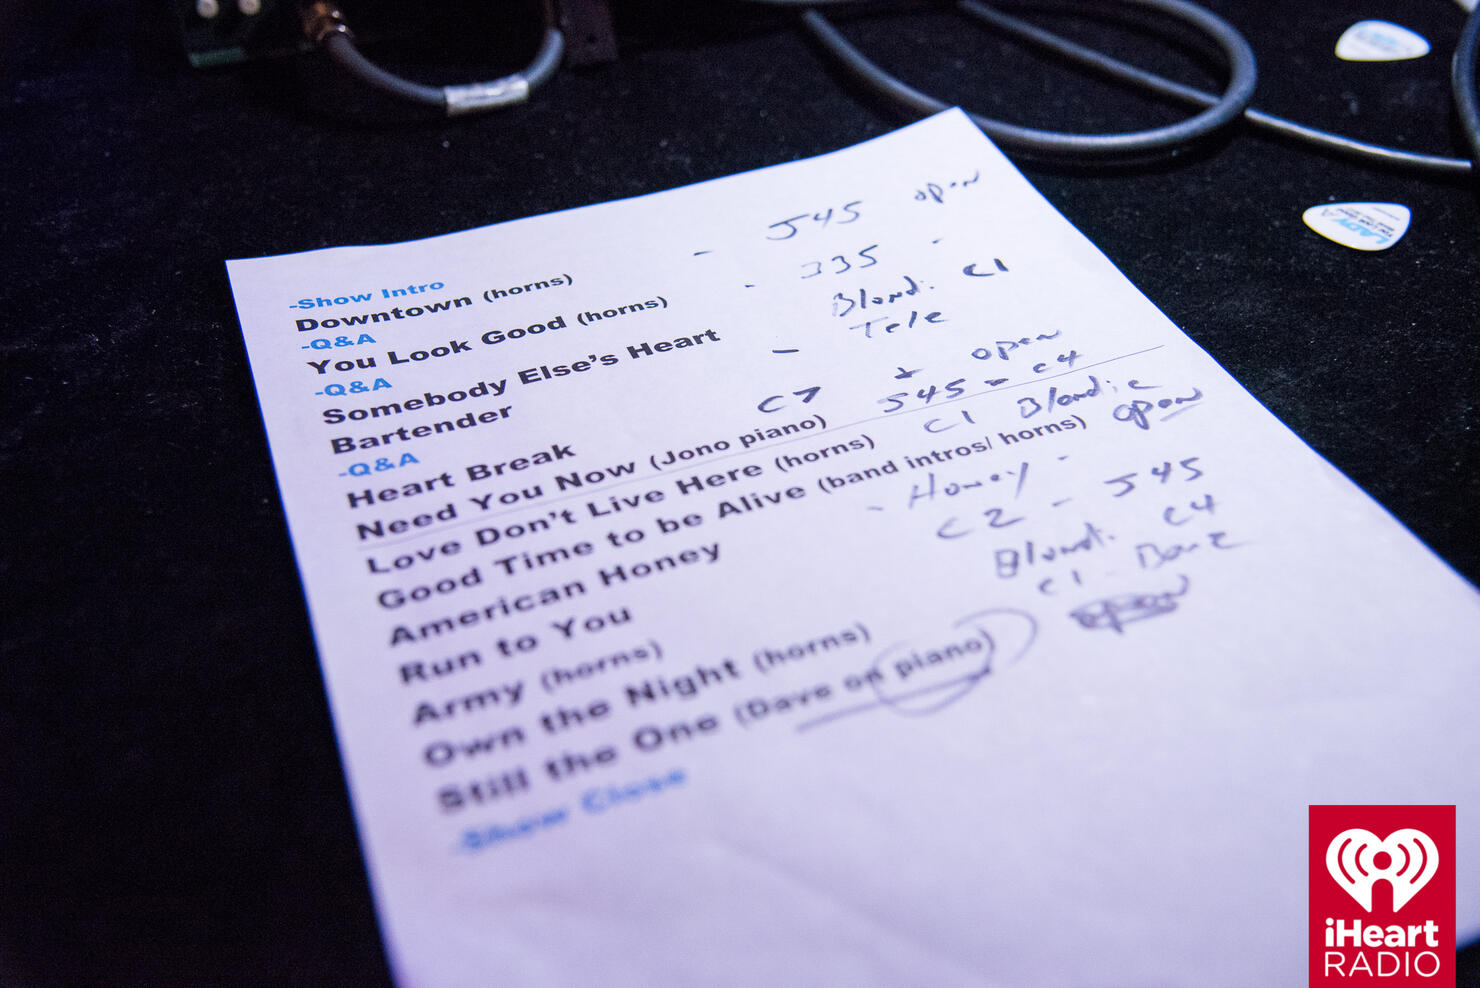 -Show Intro
Downtown (horns) - J45 open
-Q&A
You Look Good (horns) - 335 -
-Q&A
Somebody Else's Heart Blondie C1
Bartender - Tele
-Q&A
Heart Break C7 + open
Need You Now (Jono piano) J45 - C4
Love Don't Live Here (horns) C1 Blondie
Good Time to be Alive (band intros/ horns) open
American Honey - Honey -
Run to You C2 - J45
Army (horns) Blondi. C4
Own the Night (horns) C1
Still the One (Dave on piano) open
-Show Close
LADY A
YOU LOOK GOOD
iHeart
RADIO